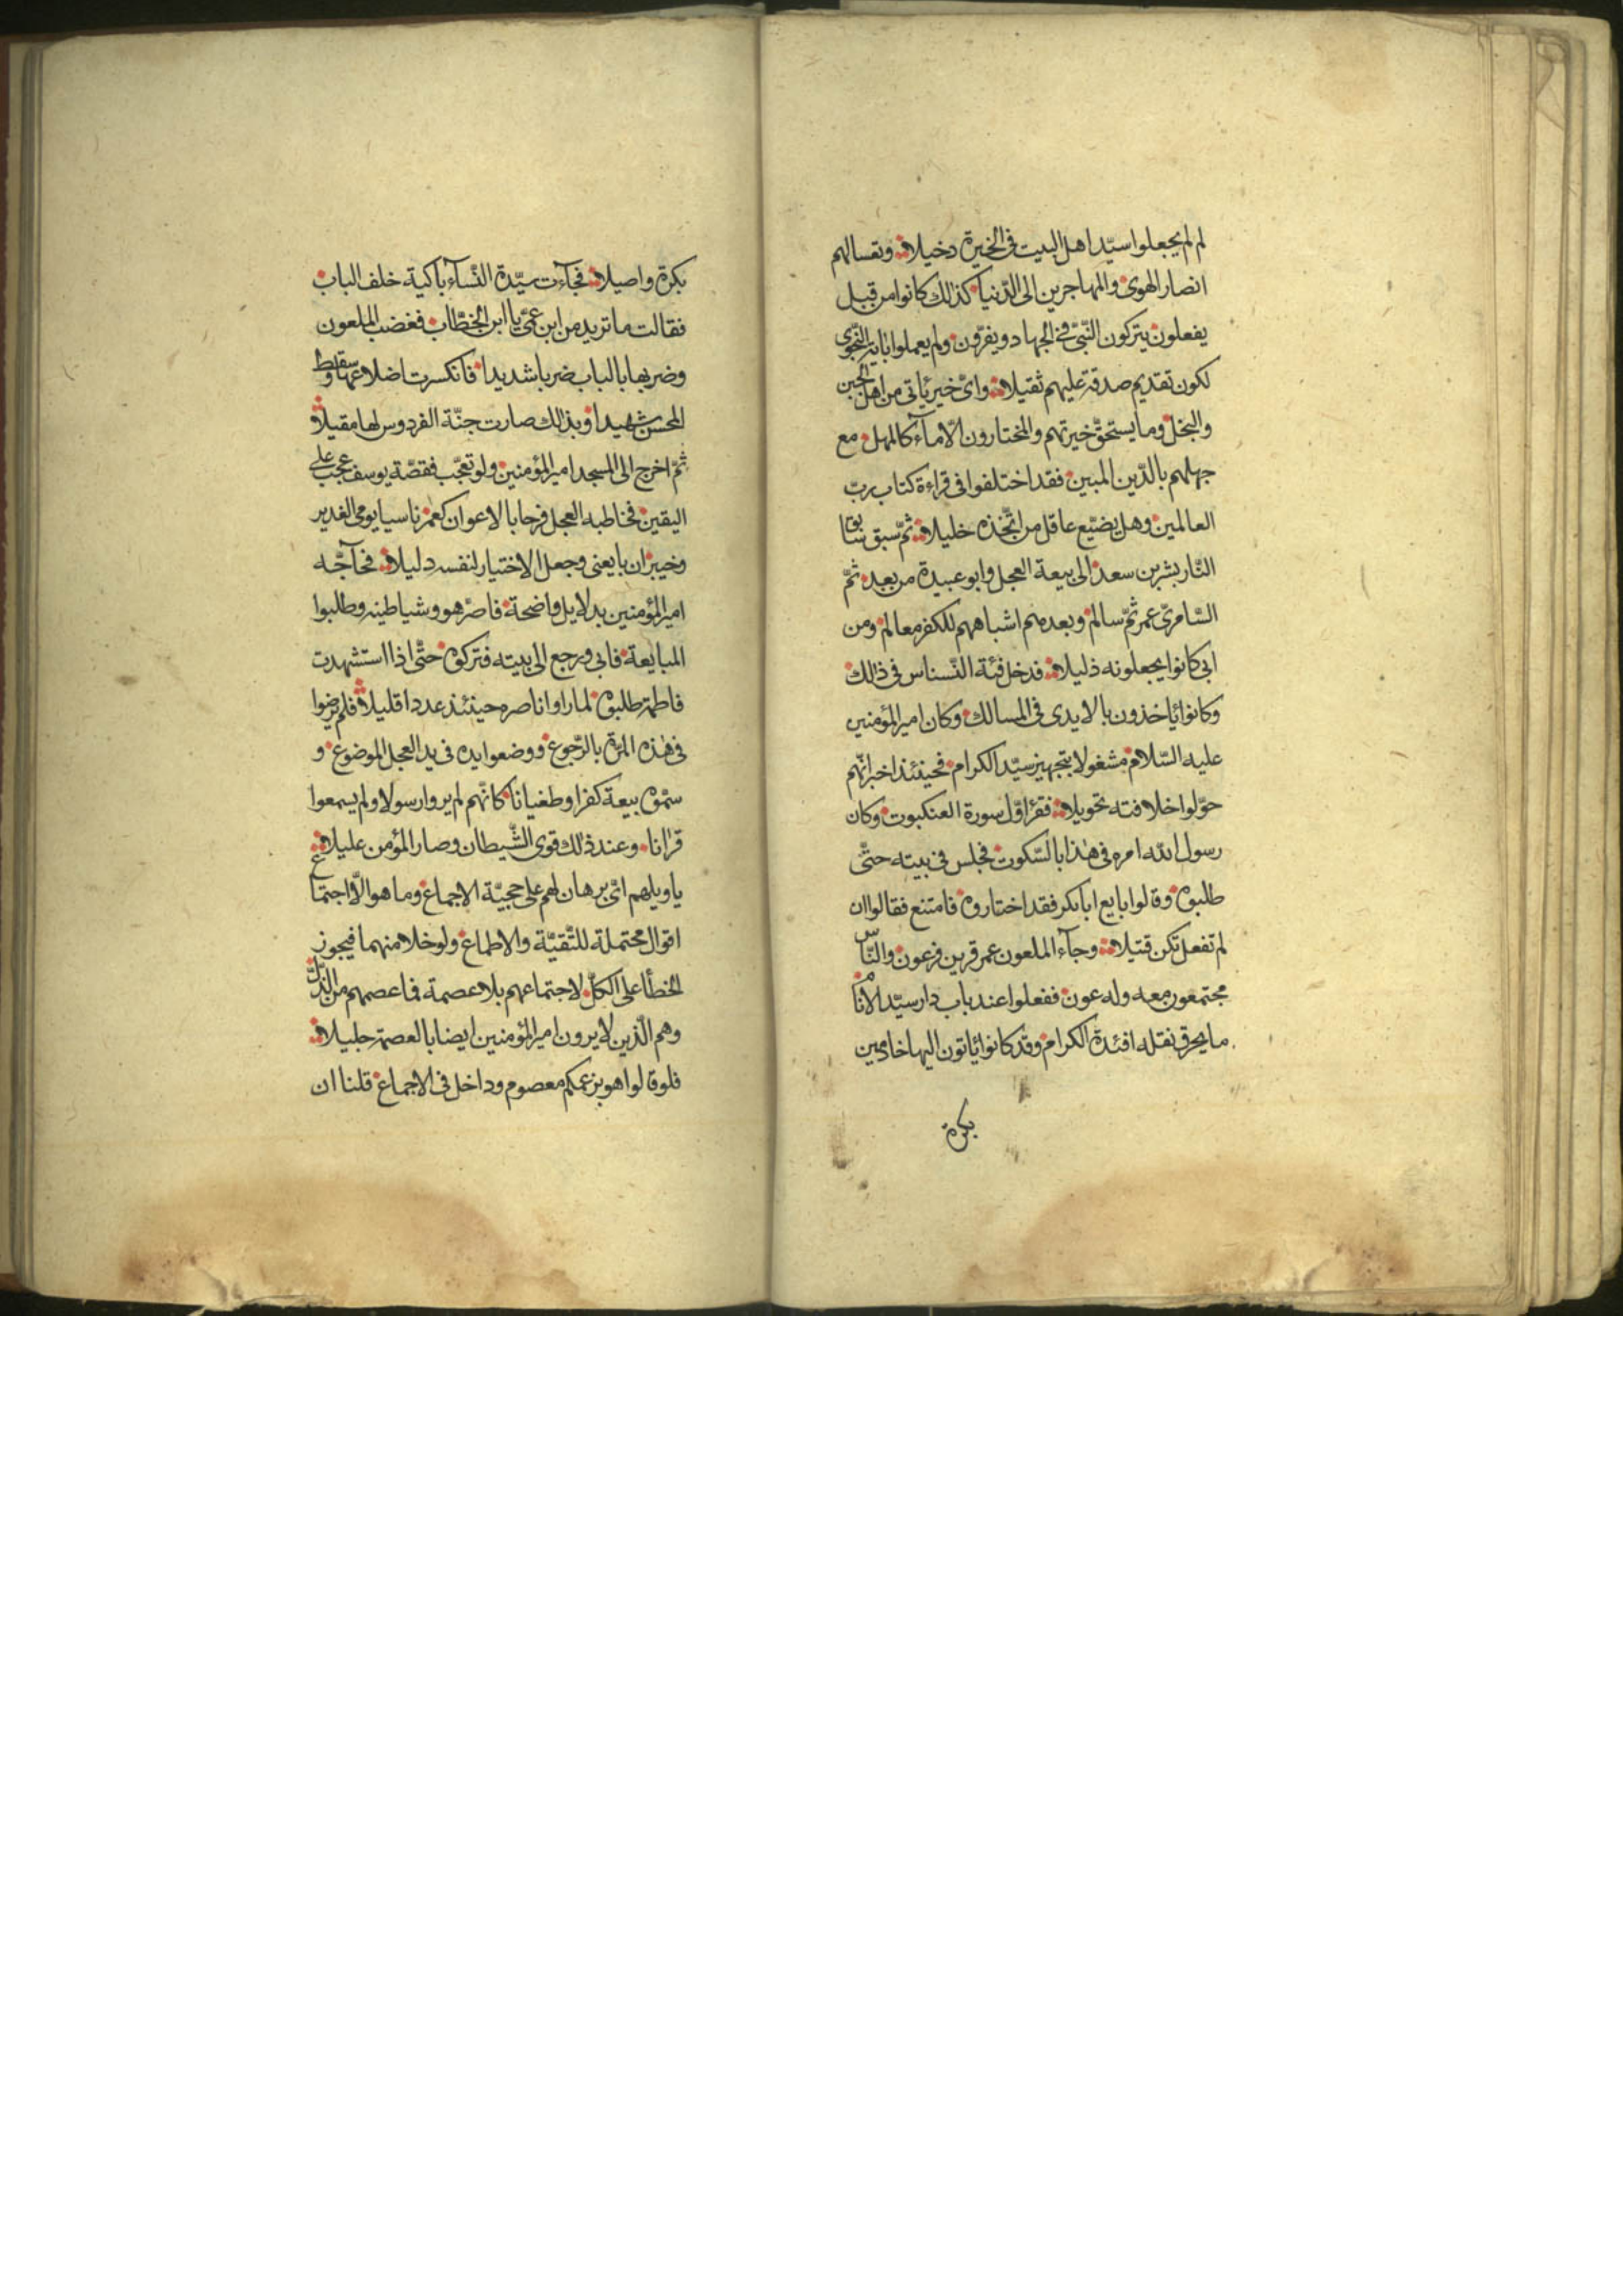 لم لم يجعلوا سيّد اهل البيت فى الخيرة دخيلا وتعسا لهم
انصار الهوى والمهاجرين الى الدّنيا كذلك كانوا من قبل
يفعلون يتركون النّبىّ فى الجهاد ويفرّون ولم يعملوا باية النّجوى
لكون تقديم صدقة عليهم ثقيلا واىّ خير يأتى من اهل الجبن
والبخل وما يستحقّ خيرتهم والمختارون الّا مآء كالمهل مع
جهلهم بالدّين المبين فقد اختلفوا فى قراءة كتاب ربّ
العالمين وهل يضيّع عاقل من اتّخذه خليلا ثمّ سبق سابق
النّار بشر بن سعد الى بيعة العجل وابو عبيدة من بعد ثمّ
السّامرىّ عمر ثمّ سالم وبعدهم اشباههم للكفر معالم ومن
ابى كانوا يجعلونه ذليلا قد دخل فئة النّسناس فى ذالك
وكانوا يأخذون بالايدى فى المسالك وكان امير المؤمنين
عليه السّلام مشغولا بتجهيز سيّد الكرام فحينئذ اخبر انّهم
حوّلوا خلافته تحويلا فقرأ اوّل سورة العنكبوت وكان
رسول الله امره فى هذا بالسّكوت فجلس فى بيته حتّى
طلبوه وقالوا بايع ابابكر فقد اختاروه فامتنع فقالوا ان
لم تفعل تكن قتيلا وجآء الملعون عمر قرين فرعون والنّاس
مجتمعون معه وله عون ففعلوا عند باب دار سيّد الانام
ما يحرق نقله افئدة الكرام وقد كانوا يأتون اليها خادمين
بكرة
بكرة واصيلا فجآءت سيّدة النّسآء باكية خلف الباب
فقالت ما تريد من ابن عمّى يا ابن الخطّاب فغضب الملعون
وضربها بالباب ضربا شديدا فانكسرت اضلاعها وسقط
المحسن شهيدا وبذالك صارت جنّة الفردوس لها مقيلا
ثمّ اخرج الى المسجد امير المؤمنين ولو تعجّب فقصّة يوسف عجب على
اليقين فخاطبه العجل فرحا بالاعوان كعمر ناسيا يومى الغدير
وخيبر ان بايعنى وجعل الاختيار لنفسه دليلا فحآجّه
امير المؤمنين بدلايل واضحة فاصرّ هو وشياطينه وطلبوا
المبايعة فابى ورجع الى بيته فتركوه حتّى اذا استشهدت
فاطمة طلبوه لما راوا ناصره حينئذ عددا قليلا فلم يرضوا
فى هذه المرّة بالرّجوع ووضعوا يده فى يد العجل الموضوع و
سمّوه بيعة كفرا وطغيانا كانّهم لم يروا رسولا ولم يسمعوا
قرانا وعند ذلك قوى الشّيطان وصار المؤمن عليلا
يا ويلهم اىّ برهان لهم على حجيّة الاجماع وما هو الّا اجتماع
اقوال محتملة للتّقيّة والاطماع ولو خلا منهما فيجوز
الخطأ على الكلّ لاجتماعهم بلا عصمة فما عصمهم من الذّلّ
وهم الّذين لا يرون امير المؤمنين ايضا بالعصمة جليلا
فلو قالوا هو بزعمكم معصوم وداخل فى الاجماع قلنا ان